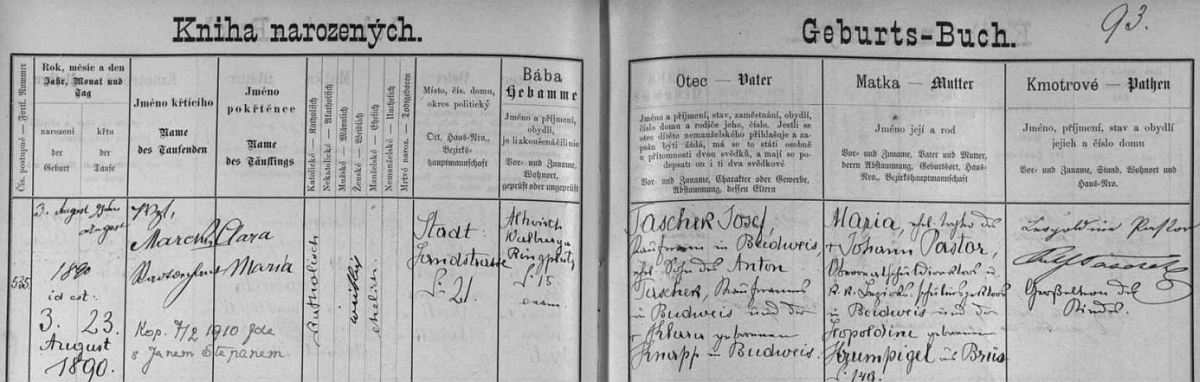 93.
Kniha narozených.
Geburts-Buch.
Čís. postupné — Fortl. Nummer
Rok, měsíc a den
Jahr, Monat und
Tag
narození
der
Geburt
křtu
der
Taufe
Jméno křtícího
Name
des Taufenden
Jméno
pokřtěnce
Name
des Täuflings
Katolické — Katholisch
Nekatolické — Akatholisch
Mužské — Männlich
Ženské — Weiblich
Manželské — Ehelich
Nemanželské — Unehelich
Mrtvě naroz. — Todtgeboren
Místo, čís. domu,
okres politický
Ort, Haus-Nro.,
Bezirks-
hauptmannschaft
Bába
Hebamme
Jméno a příjmení,
obydlí,
je li zkoušená čili nic
Vor- und Zuname,
Wohnort,
geprüft oder ungeprüft
Otec — Vater
Jméno a příjmení, stav, zaměstnání, obydlí,
číslo domu a rodiče jeho, číslo. Jestli se
otec dítěte nemanželského přihlašuje a za-
psán býti žádá, má se to státi osobně
u přítomnosti dvou svědků, a mají se po-
depsati on i ti dva svědkové
Vor- und Zuname, Charakter oder Gewerbe,
Abstammung, dessen Eltern
Matka — Mutter
Jméno její a rod
Vor- und Zuname, Vater und Mutter,
deren Abstammung, Geburtsort, Haus-
Nro., Bezirkshauptmannschaft
Kmotrové — Pathen
Jméno, příjmení, stav a obydlí
jejich a číslo domu
Vor- und Zuname, Stand, Wohnort und
Haus-Nro.
535
3. August
August
1890
id est:
3. 23.
August
1890.
Clara
Maria
Kop. 7/2 1910 zde
s Janem Štěpanem.
Katholisch
weiblich
ehelich
Stadt
Landstrasse
No 21.
Walburga
Ringplatz
No 15
exam.
Taschek Josef,
Kaufmann in Budweis,
ehl. Sohn des Anton
Taschek, Kaufmanns
in Budweis und der
† Klara geborenen
Knapp in Budweis.
Maria, ehl. Tochter des
† Johann Pastor,
k. k. Bezirks-Schulinspektors
in Budweis und der
Leopoldine geborenen
Krumpigel aus Brüx
No 140.
Leopoldine Pastor
Großeltern des
Kindes